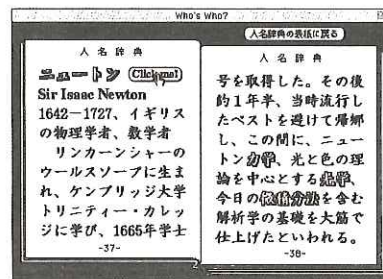 Who's Who?
人名辞典の表紙に戻る
人 名 辞 典
ニュートン Click me!
Sir Isaac Newton
1642－1727、イギリス
の物理学者、数学者
　リンカーンシャーの
ウールスソープに生ま
れ、ケンブリッジ大学
トリニティー・カレッ
ジに学び、1665年学士
-37-
人 名 辞 典
号を取得した。その後
約1年半、当時流行し
たペストを避けて帰郷
し、この間に、ニュー
トン力学、光と色の理
論を中心とする光学、
今日の微積分法を含む
解析学の基礎を大筋で
仕上げたといわれる。
-38-